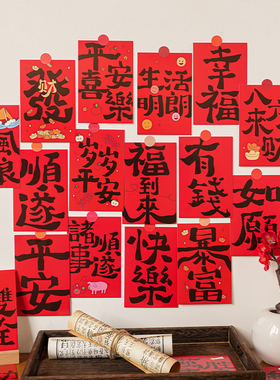 發财
平安
喜樂
生活
明朗
幸福
八
来财
風
順遂
岁岁
平安
福到來
有錢
如
願
平安
諸事
順遂
快樂
暴富
雙